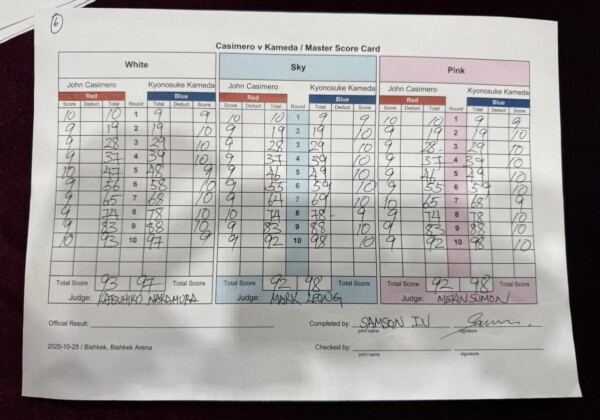 6
Casimero v Kameda / Master Score Card
White Sky Pink
John Casimero Kyonosuke Kameda John Casimero Kyonosuke Kameda John Casimero Kyonosuke Kameda
Red Blue Red Blue Red Blue
Score Deduct Total Round Total Deduct Score Score Deduct Total Round Total Deduct Score Score Deduct Total Round Total Deduct Score
10 10 1 9 9 10 10 1 9 9 10 10 1 9 9
9 19 2 19 10 9 19 2 19 10 9 19 2 19 10
9 28 3 29 10 9 28 3 29 10 9 28 3 29 10
9 37 4 39 10 9 37 4 39 10 9 37 4 39 10
10 47 5 48 9 9 46 5 49 10 9 46 5 49 10
9 56 6 58 10 9 55 6 59 10 9 55 6 59 10
9 65 7 68 10 9 64 7 69 10 10 65 7 68 9
9 74 8 78 10 10 74 8 78 9 9 74 8 78 10
9 83 9 88 10 9 83 9 88 10 9 83 9 88 10
10 93 10 97 9 9 92 10 98 10 9 92 10 98 10
Total Score 93 97 Total Score Total Score 92 98 Total Score Total Score 92 98 Total Score
Judge: KATSUHIKO NAKAMURA Judge: MARK LEONG Judge: MEKIN SUMON
Official Result: Completed by: SAMSON IV
print name signature
2025-10-25 / Bishkek, Bishkek Arena Checked by:
print name signature